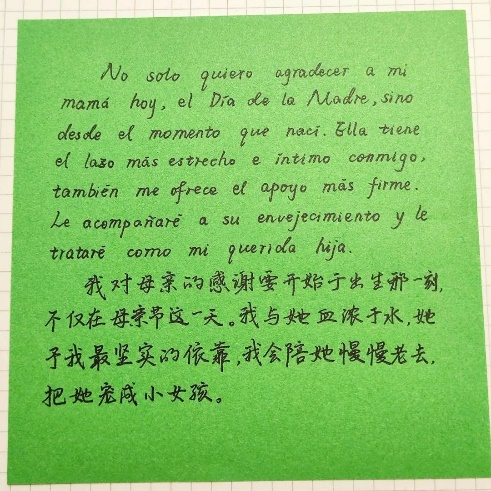 No solo quiero agradecer a mi
mamá hoy, el Día de la Madre, sino
desde el momento que nací. Ella tiene
el lazo más estrecho e íntimo conmigo,
también me ofrece el apoyo más firme.
Le acompañaré a su envejecimiento y le
trataré como mi querida hija.
我对母亲的感谢要开始于出生那一刻,
不仅在母亲节这一天。我与她血浓于水,她
予我最坚实的依靠,我会陪她慢慢老去,
把她宠成小女孩。